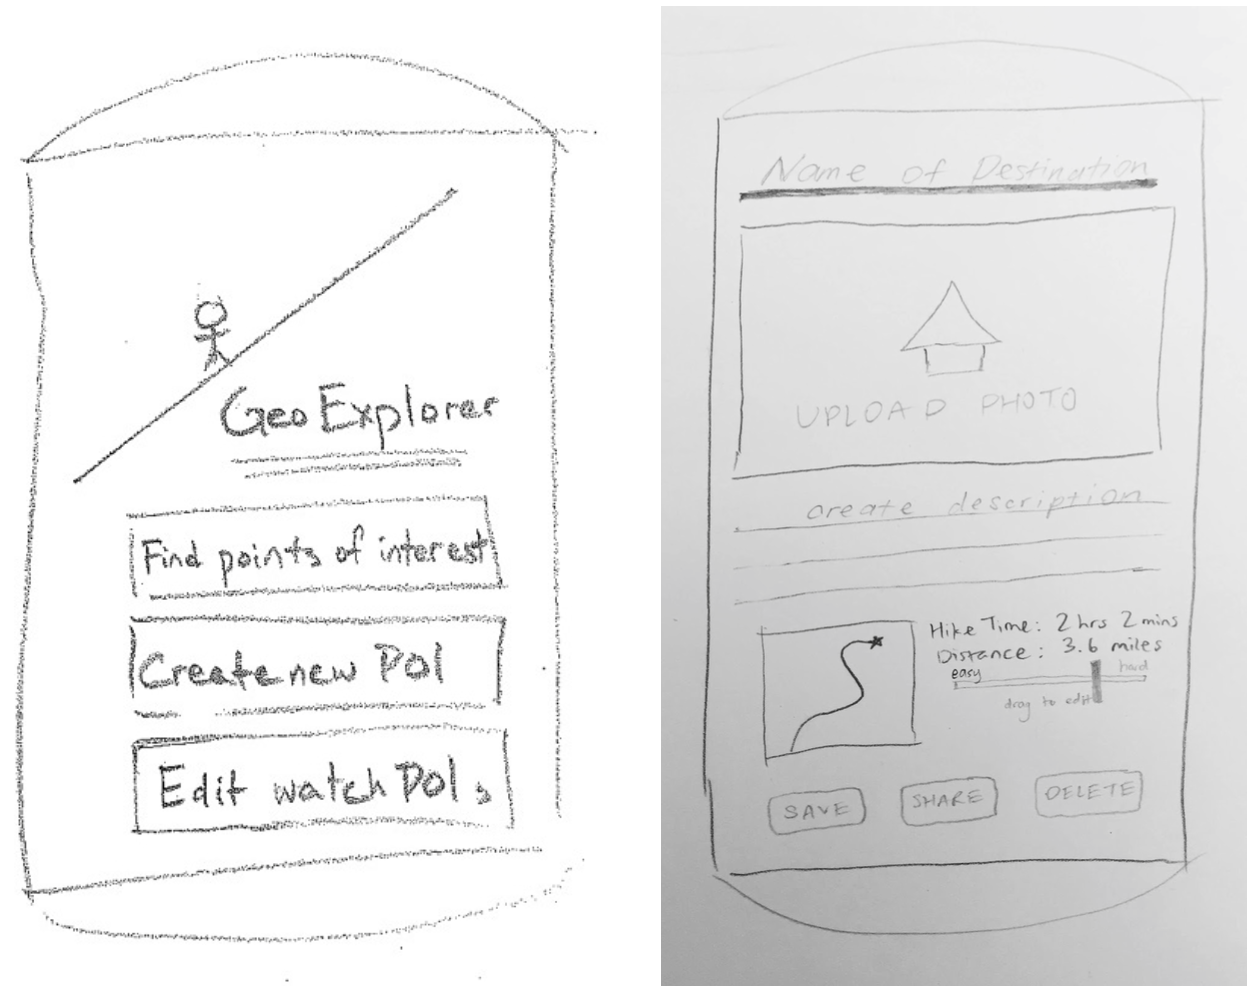 Geo Explorer
Find points of interest
Create new POI
Edit watch POIs
Name of Destination
UPLOAD PHOTO
create description
Hike Time: 2 hrs 2 mins
Distance: 3.6 miles
easy hard
drag to edit
SAVE SHARE DELETE